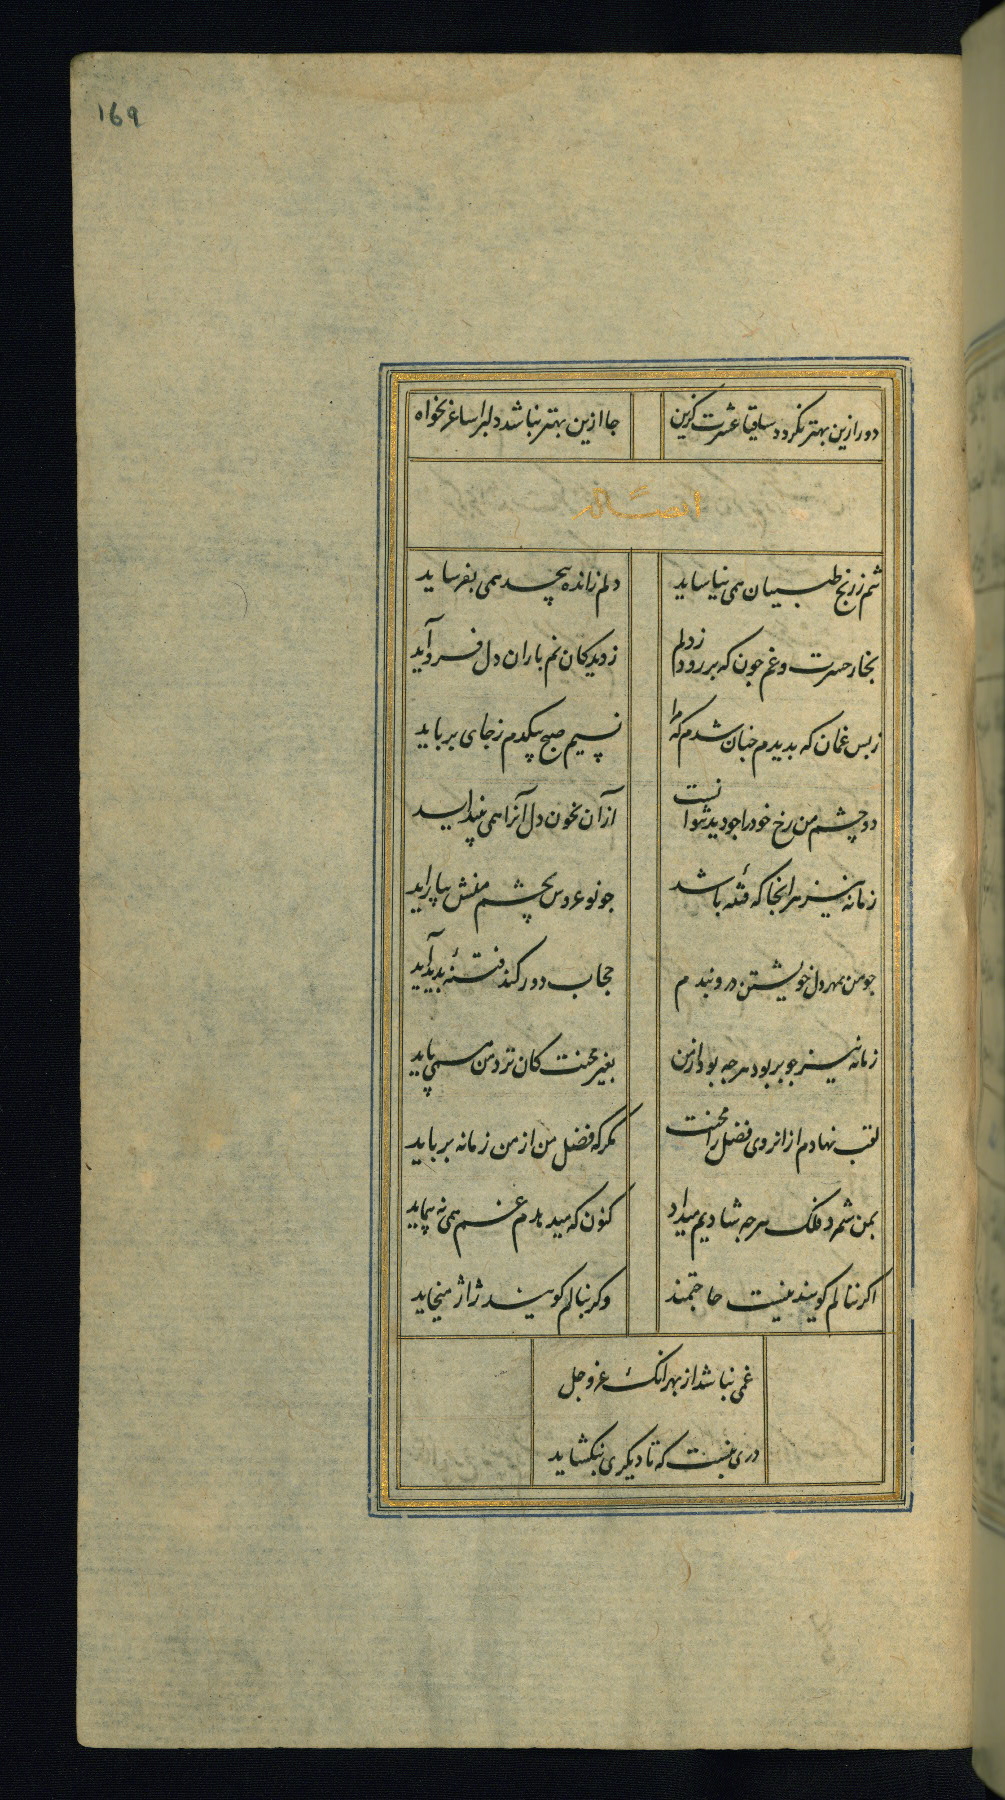 169
دور ازین بهتر نکردد ساقیا عشرت کزین
جا ازین بهتر نباشد دلبرا ساغر بخواه
ایضًا له
تنم ز رنج طبیبان همی نیاساید
دلم ز انده بیحد همی بفرساید
بخار حسرت و غم جون که بر رود ز دلم
ز دیدکان نم باران دل فرود آید
ز بس غمان که بدیدم جنان شدم که مرا
نسیم صبح بیکدم ز جای برباید
دو چشم من رخ خود را جو دید نتوانست
از آن بخون دل آنرا همی بیندابد
زمانه نیز هر انجا که فتنهٔ باشد
جو نو عروس بچشم منش بیاراید
جو من بمهر دل خویشتن درو بندم
حجاب دور کند فتنهٔ بدید آید
زمانه نیز جو بربود هرجه بود از من
بغیر محنت کان نزد من همی پاید
لقب نهادم از انروی فضل را محنت
مکر که فضل من از من زمانه برباید
بمن شمرد فلک هرجه شادیم میداد
کنون که میدهدم غم همی نه پیماید
اکر ننالم کویند نیست حاجتمند
وکر بنالم کویند ژاژ میخاید
غمی نباشد از بهر انک عز و جل
دری نبست که تا دیکری بنکشاید